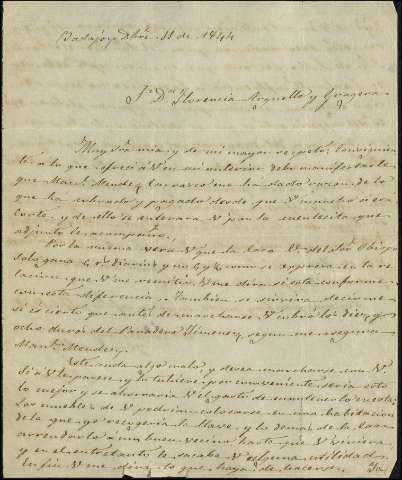 Badajoz y Dbre. 11 de 1844
Sra. Da. Florencia Arguello y Gragera
Muy Sra. mia y de mi mayor respeto: Consiguiente
á lo que ofreci á V. en mi anterior debo manifestarle
que Manl. Mendez Carrasco me ha dado razon de lo
que ha cobrado y pagado desde que V. marchó á esa
Corte, y de ello se enterara V. por la cuentecita que
adjunta le acompaño.
Por la misma vera V. que la Casa de del Sor. Obispo
solo gana 4 rs. diarios y no 4 y ½ como se expresa en la re
lacion que V. me remitió. V. me dira si está conforme
con esta diferencia. Tambien se servira decirme
si es cierto que antes de marcharse V. cobró los diez y
ocho duros del Panadero Jimenez, segun me asegura
Manl. Mendez.
Este anda algo malo, y desea marcharse con V.
Si á V. le parece y lo tubiere por conveniente, seria esto
lo mejor y se ahorraria V. el gasto de mantenerlo en esta:
Los muebles de V. podrian colocarse en una habitacion
de la que yo recogeria la llave, y lo demas de la Casa
arrendarlo á un buen vecino hasta que V. viniera,
y en el entretanto le sacaba V. alguna utilidad.
En fin V. me dirá lo que haya de hacerse.